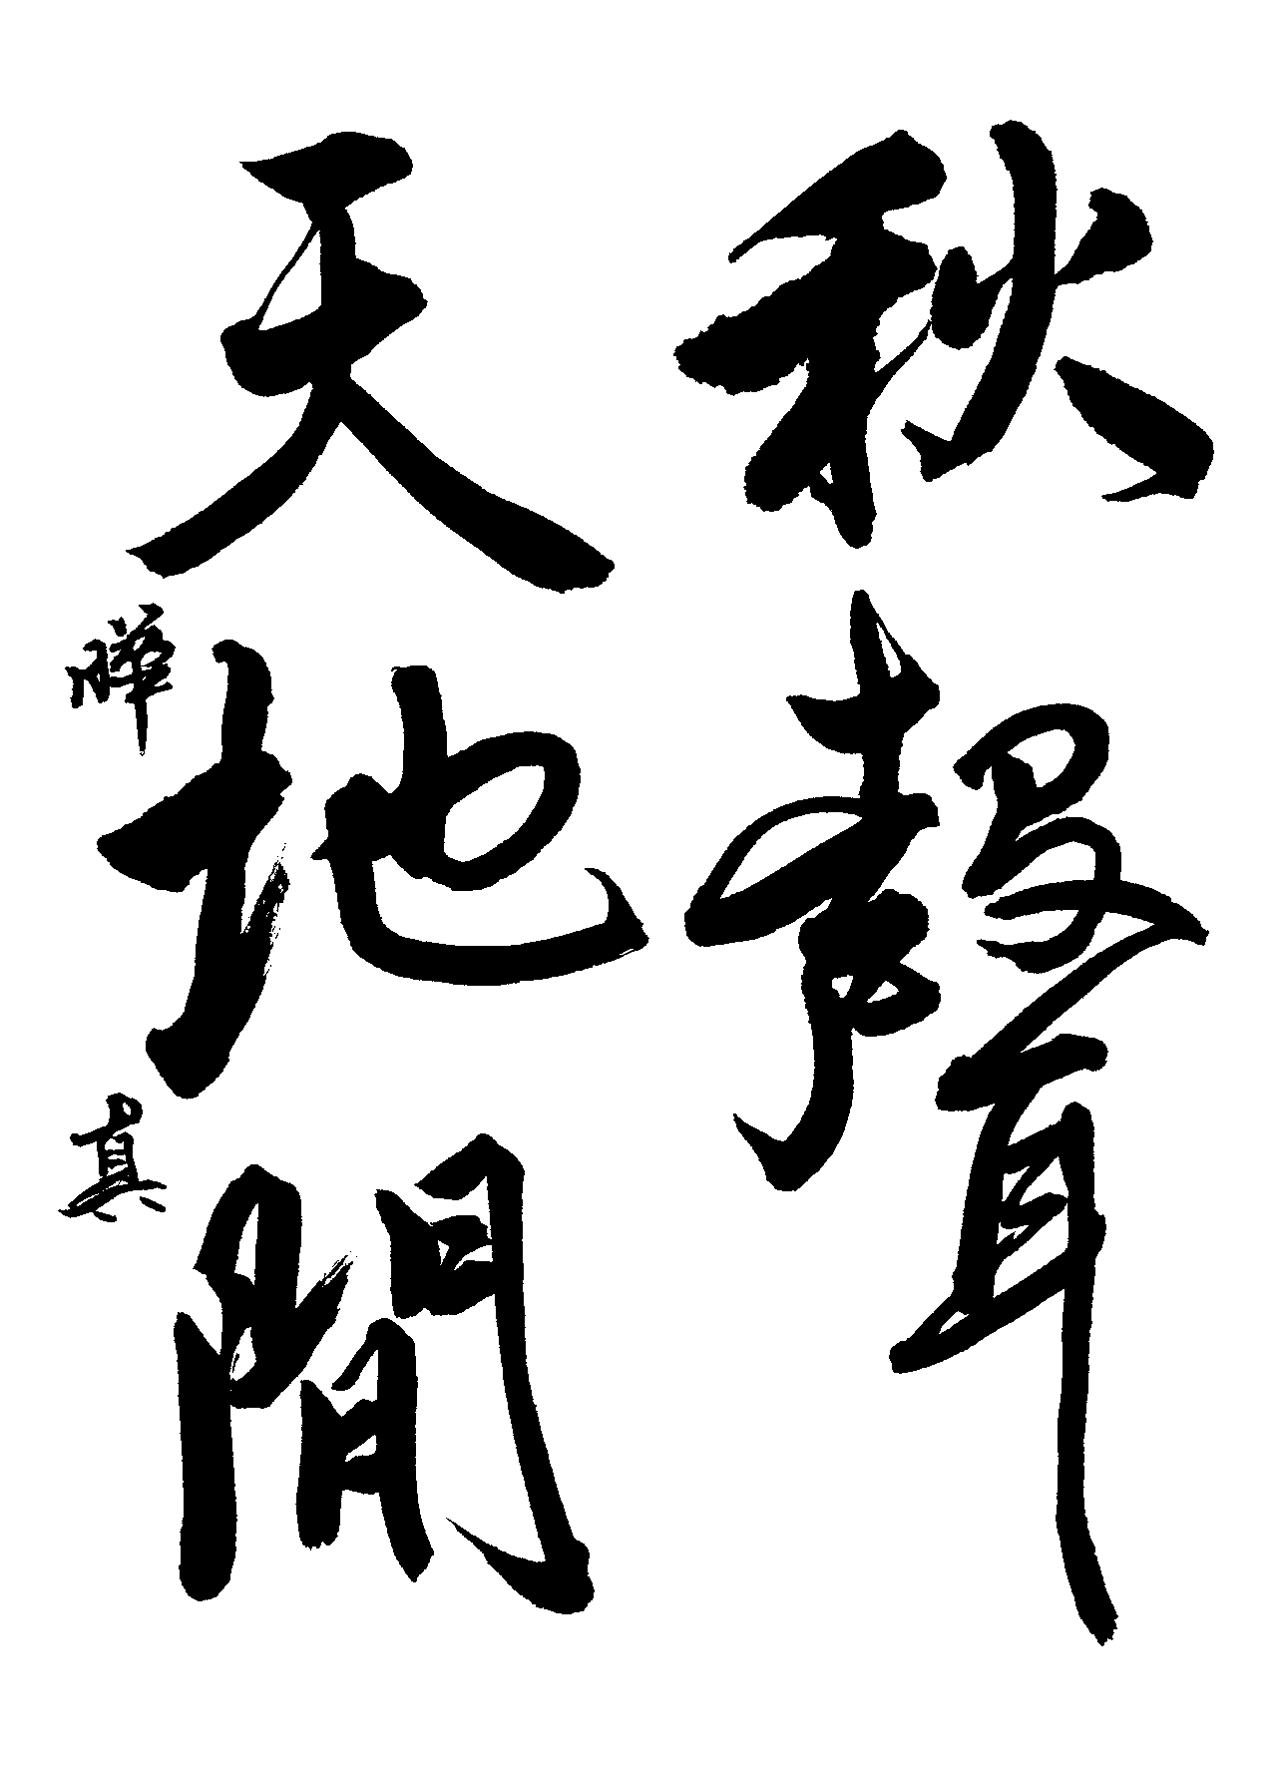 秋聲
天地間
曄真